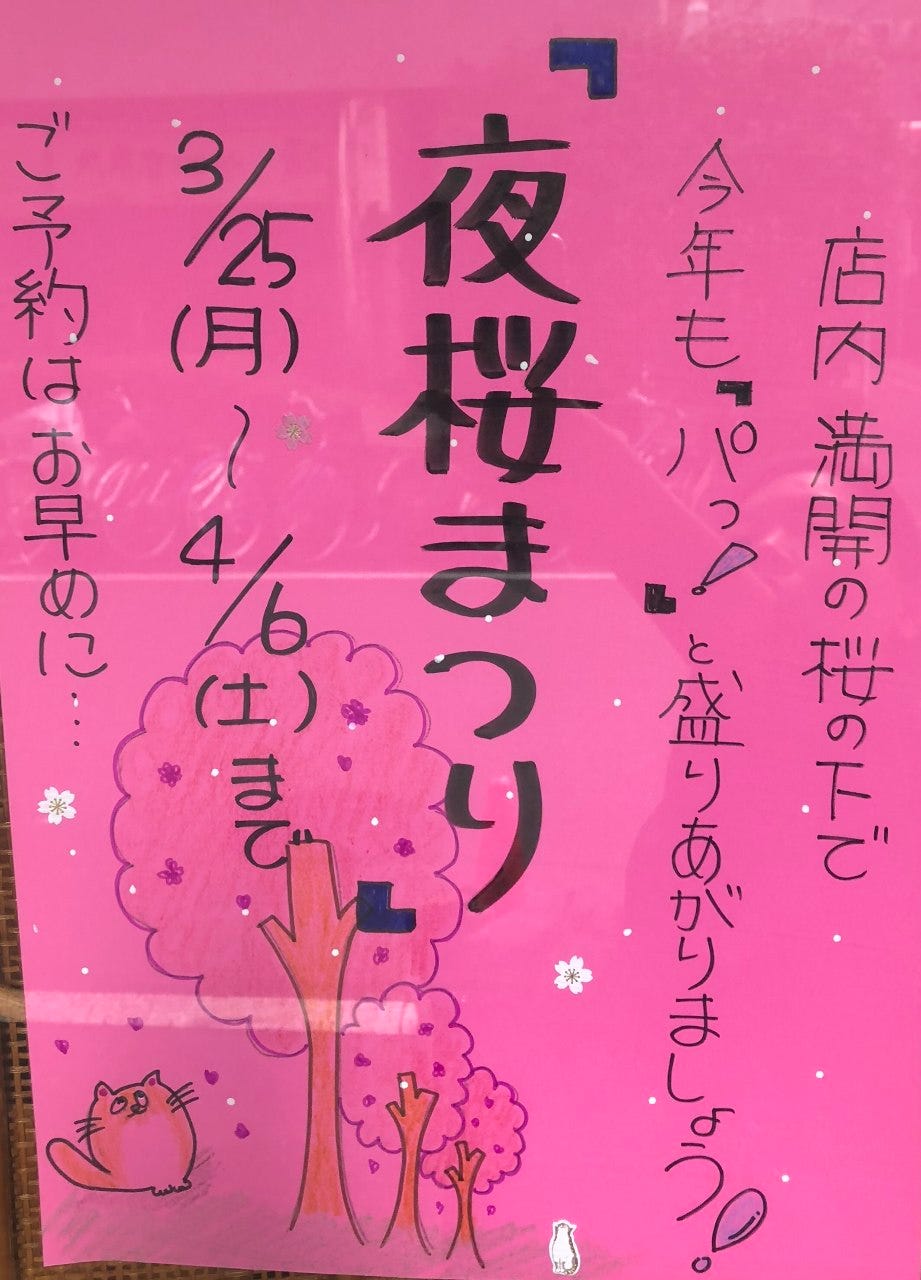 店内満開の桜の下で
今年も『パっ!』と盛りあがりましょう!
『夜桜まつり』
3/25(月)〜4/6(土)まで
ご予約はお早めに…